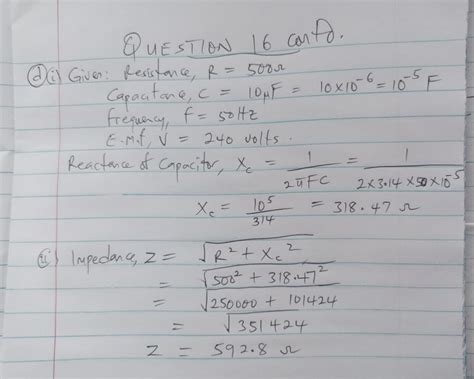 QUESTION 16 contd.
(d)(i) Given: Resistance, R = 500Ω
Capacitance, C = 10μF = 10x10^-6 = 10^-5 F
Frequency, f = 50Hz
E.M.f, V = 240 volts.
Reactance of Capacitor, Xc = 1/2πFC = 1/2x3.14x50x10^-5
Xc = 10^5/314 = 318.47 Ω
(ii) Impedance, Z = √R² + Xc²
= √500² + 318.47²
= √250000 + 101424
= √351424
Z = 592.8 Ω